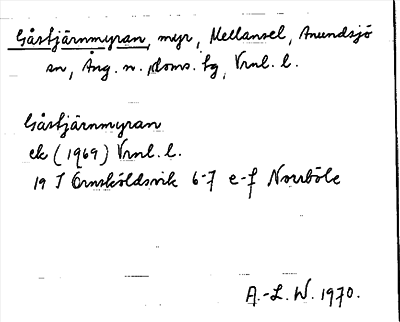 Gåstjärnmyran, myr, Mellansel, Anundsjö
sn, Ång. n. doms. tg, Vrnl. l.
Gåstjärnmyran
ek (1969) Vrnl. l.
19 I Örnsköldsvik 6-7 e-f Norrböle
A.-L. W. 1970.